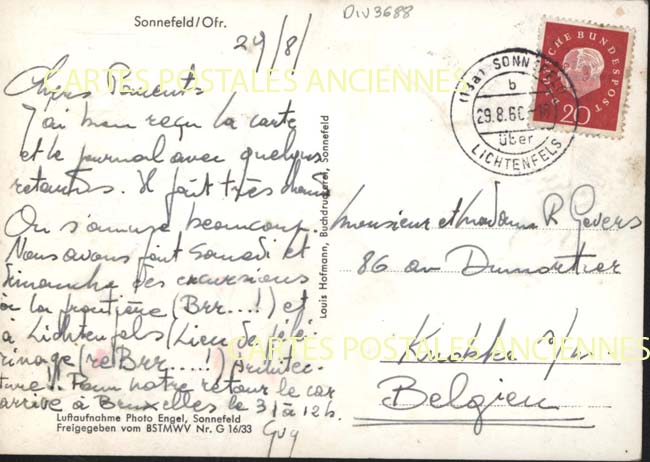 Sonnefeld/Ofr.
DIV3688
29/8/
Chers Parents
J'ai bien reçu la carte
et le journal avec quelques
retards. Il fait très chaud
On s'amuse beaucoup.
Nous avons fait samedi et
dimanche des excursions
à la frontière (Brr...!) et
à Lichtenfels (Lieu de pélé-
rinage (reBrr....!) Architec-
ture.. Pour notre retour le car
arrive à Bruxelles le 31 à 12h.
Guy
Luftaufnahme Photo Engel, Sonnefeld
Freigegeben vom BSTMWV Nr. G 16/33
Louis Hofmann, Buchdruckerei, Sonnefeld
DEUTSCHE BUNDESPOST
20
(13a) SONNEFELD
b
29.8.60
über
LICHTENFELS
Monsieur et Madame R Gevers
86 av Dumortier
Belgien
CARTES POSTALES ANCIENNES
CARTES POSTALES ANCIENNES